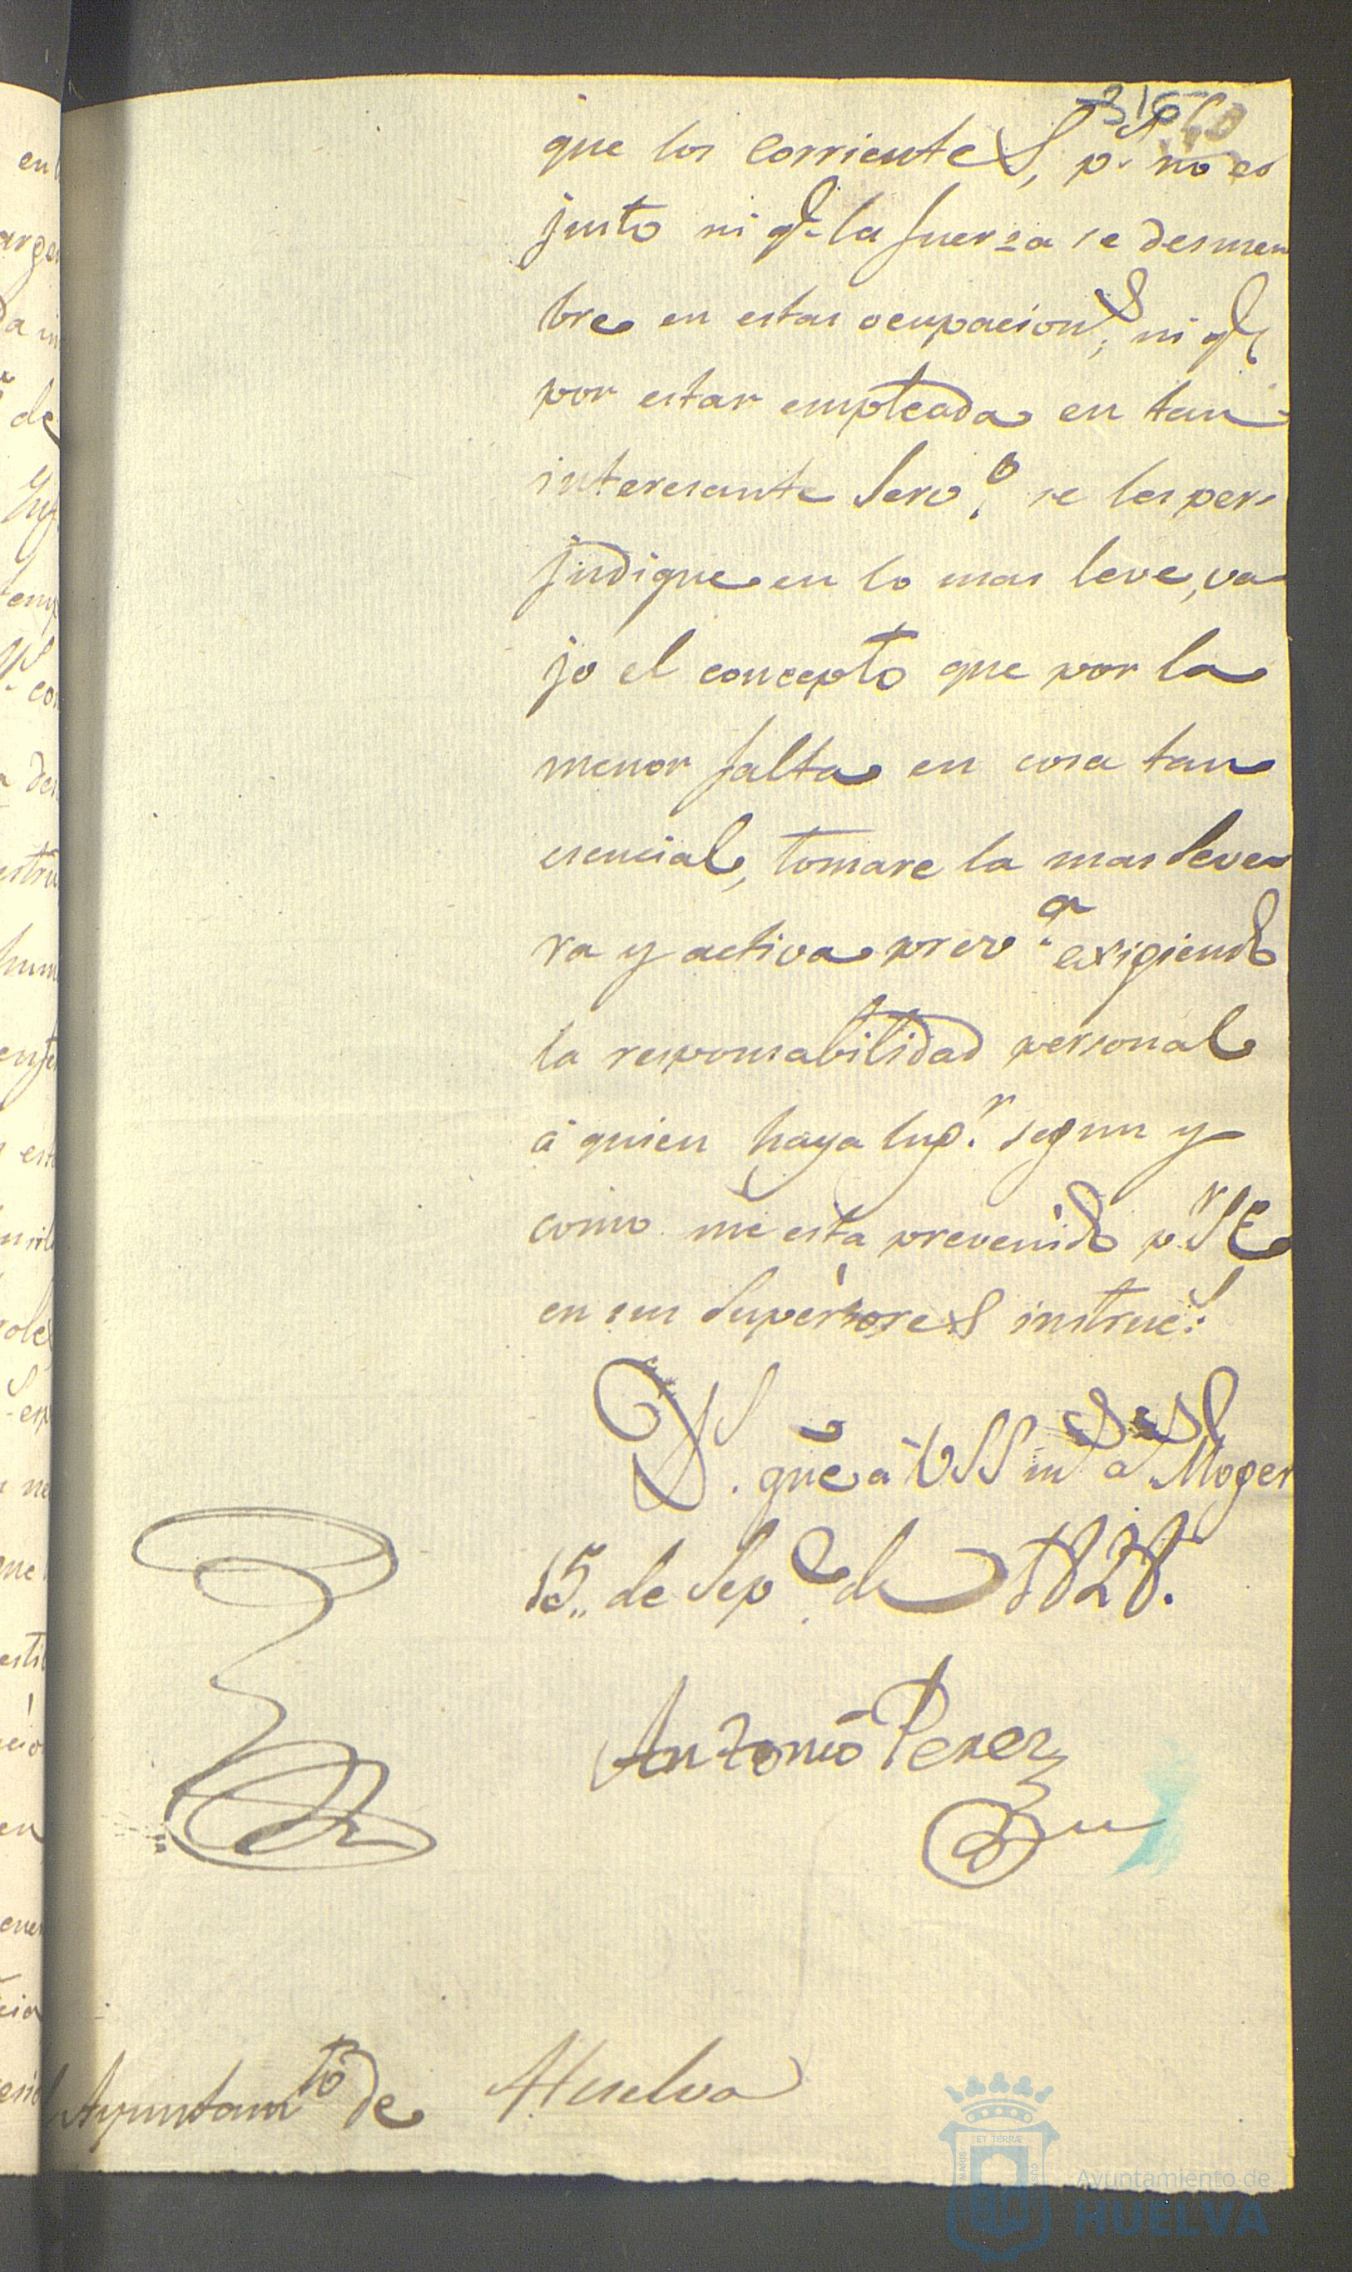 316
que los corrientes, pr. no es
justo ni q.e la fuerza se desmen
bre en estas ocupaciones, ni q.e
por estar empleada en tan
interesante Serv.o se les per-
judique en lo mas leve, va-
jo el concepto que por la
menor falta en cosa tan
esencial, tomare la mas seve-
ra y activa prov.a exigiendo
la responsabilidad personal
á quien haya lug.r segun y
como me está prevenido p.r S E
en sus Superiores instruc.s
D.s gue á VSS m.s a.s Moger
15,, de Sep.e de 1828.
Antonio Perez
Ayuntam.to de Huelva
ET TERRÆ
Ayuntamiento de
HUELVA